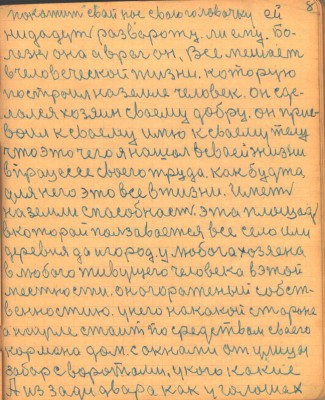 8
покатит свай нос свою головачку ей
нидадут развороту. ли ему. бо-
лезн она а враг он. Все мешает
вчеловеческой жизни. которую
построил наземле человек. он сде-
лался хозяин своему добру. он при-
воил ксваему имю ксваему телу
что это чего я нашол всваей жизни
впрацессе своего труда. как будта
для него это все вжизни. Имет
наземли спасобнаст. эта площад
вкоторай ползавается все село или
деревня да и город. у любога хозяена
в любого живущего человека вэтой
местности. она гораженый собст-
венностию. унего накакой стороне
а нощуле стаит по средствам сваего
кармана дом. сокнами от улицы
забар своротами, укого какие
А иззади двара как уголоших